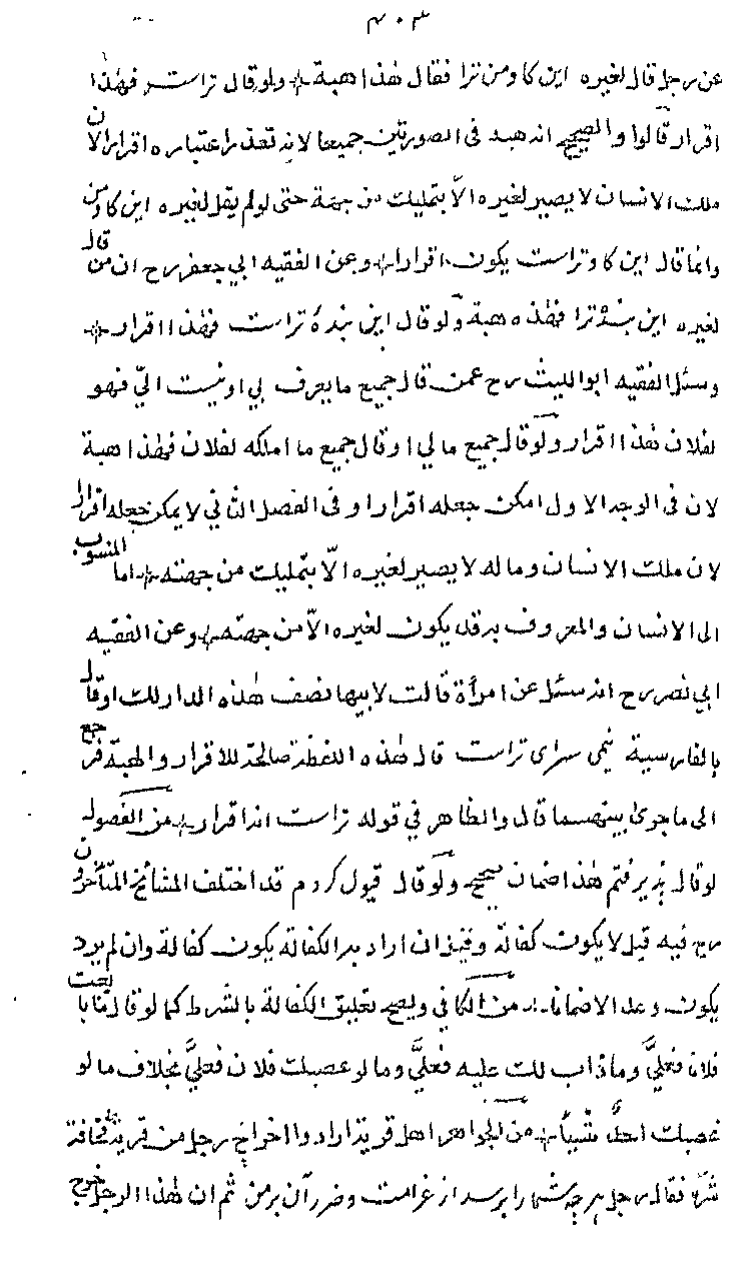 ٤٠٣
عن رجل قال لغيره این کاو من ترا فقال هٰذا هبة ولو قال تراست فهٰذا
اقرار قالوا والصحيح انه هبة فى الصورتين جميعا لانه تعذر اعتباره اقرارا لان
ملك الانسان لا يصير لغيره الّا بتمليك من جهته حتى لو لم يقل لغيره این کاو من
وانما قال این کاو تراست يكون اقرارا وعن الفقيه ابي جعفر رح ان من قال
لغيره این بنده ترا فهٰذه هبة ولو قال این بندهٔ تراست فهٰذا اقرار
وسئل الفقيه ابو الليث رح عمن قال جميع ما يعرف بي او نسبت اليّ فهو
لفلان فهذا اقرار ولو قال جميع مالي او قال جميع ما املكه لفلان فهٰذا هبة
لان فى الوجه الاول امكن جعله اقرارا وفى الفصل الثاني لا يمكن جعله اقرارا
لان ملك الانسان وماله لا يصير لغيره الّا بتمليك من جهته اما المنسوب
الى الانسان والمعروف به قد يكون لغيره الّا من جهته وعن الفقيه
ابي نصر رح انه سئل عن امرأة قالت لابيها نصف هٰذه الدار لك او قال
بالفارسية نيمى سراى تراست قال هٰذه اللفظة صالحة للاقرار والهبة فرجع
الى ما جرىٰ بينهما قال والظاهر في قوله تراست انه اقرار من الفصول
لو قال پذيرفتم هٰذا ضمان صحيح ولو قال قبول كردم قد اختلف المشائخ المتأخرون
رح فيه قيل لا يكون كفالة وقيل ان اراد به الكفالة يكون كفالة وان لم يرد
يكون وعدا لا ضمانا من الكافي ويصح تعليق الكفالة بالشرط كما لو قال ما بايعت
فلانا فعليَّ وما ذاب لك عليه فعليَّ وما لو غصبك فلان فعليَّ بخلاف ما لو
غصبك احدٌ شيئاً من الجواهر اهل قرية ارادوا اخراج رجل من قرية مخافة
شرّه فقال رجل هرچه شما را برسد از غرامت وضرر آن بر من ثم ان هٰذا الرجل خرج